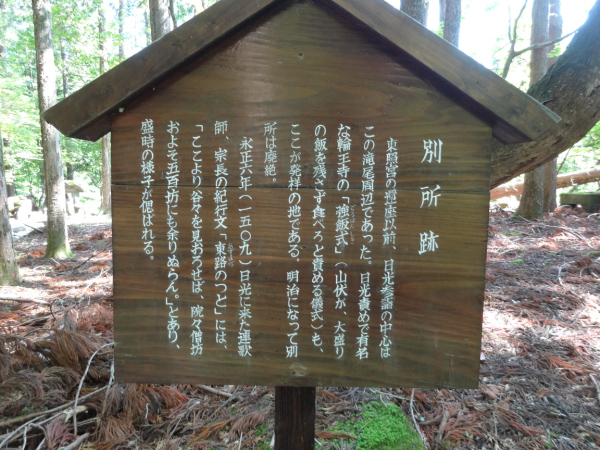 別所跡
東照宮の遷座以前、日光参詣の中心は
この滝尾周辺であった。日光責めで有名
な輪王寺の「強飯式」（山伏が、大盛り
の飯を残さず食べろと責める儀式）も、
ここが発祥の地である。明治になって別
所は廃絶。
永正六年（一五〇九）日光に来た連歌
師、宗長の紀行文「東路のつと」には、
「ここより谷々を見おろせば、院々僧坊
およそ五百坊にも余りぬらん。」とあり、
盛時の様子が偲ばれる。